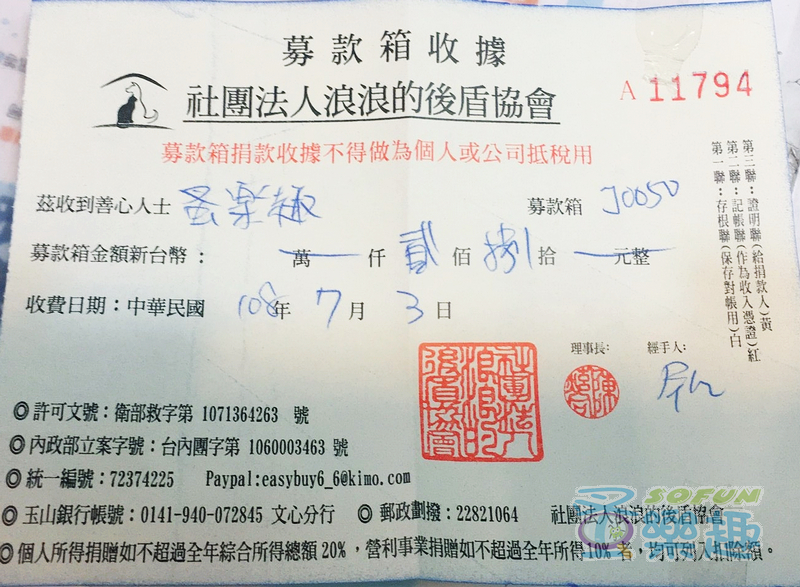 募款箱收據
社團法人浪浪的後盾協會
A 11794
募款箱捐款收據不得做為個人或公司抵稅用
茲收到善心人士 蚤樂趣 募款箱 J0050
募款箱金額新台幣: 萬 仟 貳 佰 捌 拾 元整
收費日期:中華民國 108年 7 月 3 日
第三聯:證明聯(給捐款人)黃
第二聯:記帳聯(作為收入憑證)紅
第一聯:存根聯(保存對帳用)白
理事長: 經手人:
社團法人浪浪的後盾協會
◎許可文號:衛部救字第 1071364263 號
◎內政部立案字號:台內團字第 1060003463 號
◎統一編號:72374225 Paypal:easybuy6_6@kimo.com
◎玉山銀行帳號:0141-940-072845 文心分行 ◎郵政劃撥:22821064 社團法人浪浪的後盾協會
◎個人所得捐贈如不超過全年綜合所得總額20%,營利事業捐贈如不超過全年所得10%者,均可列入扣除額。
SOFUN
樂趣